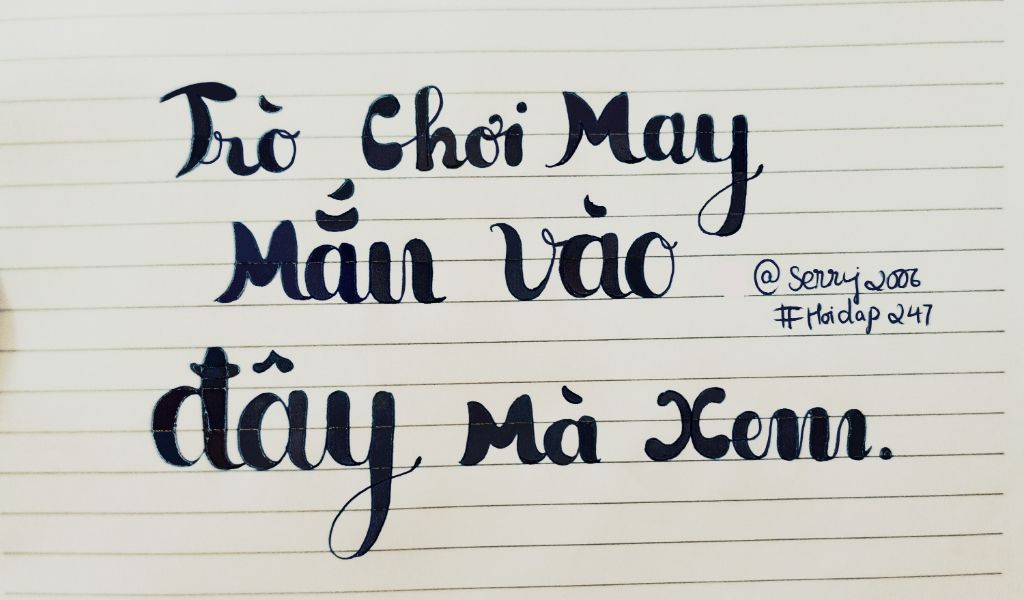 Trò Chơi May
Mắn Vào
@Serry2006
#Hoidap247
đây Mà Xem.